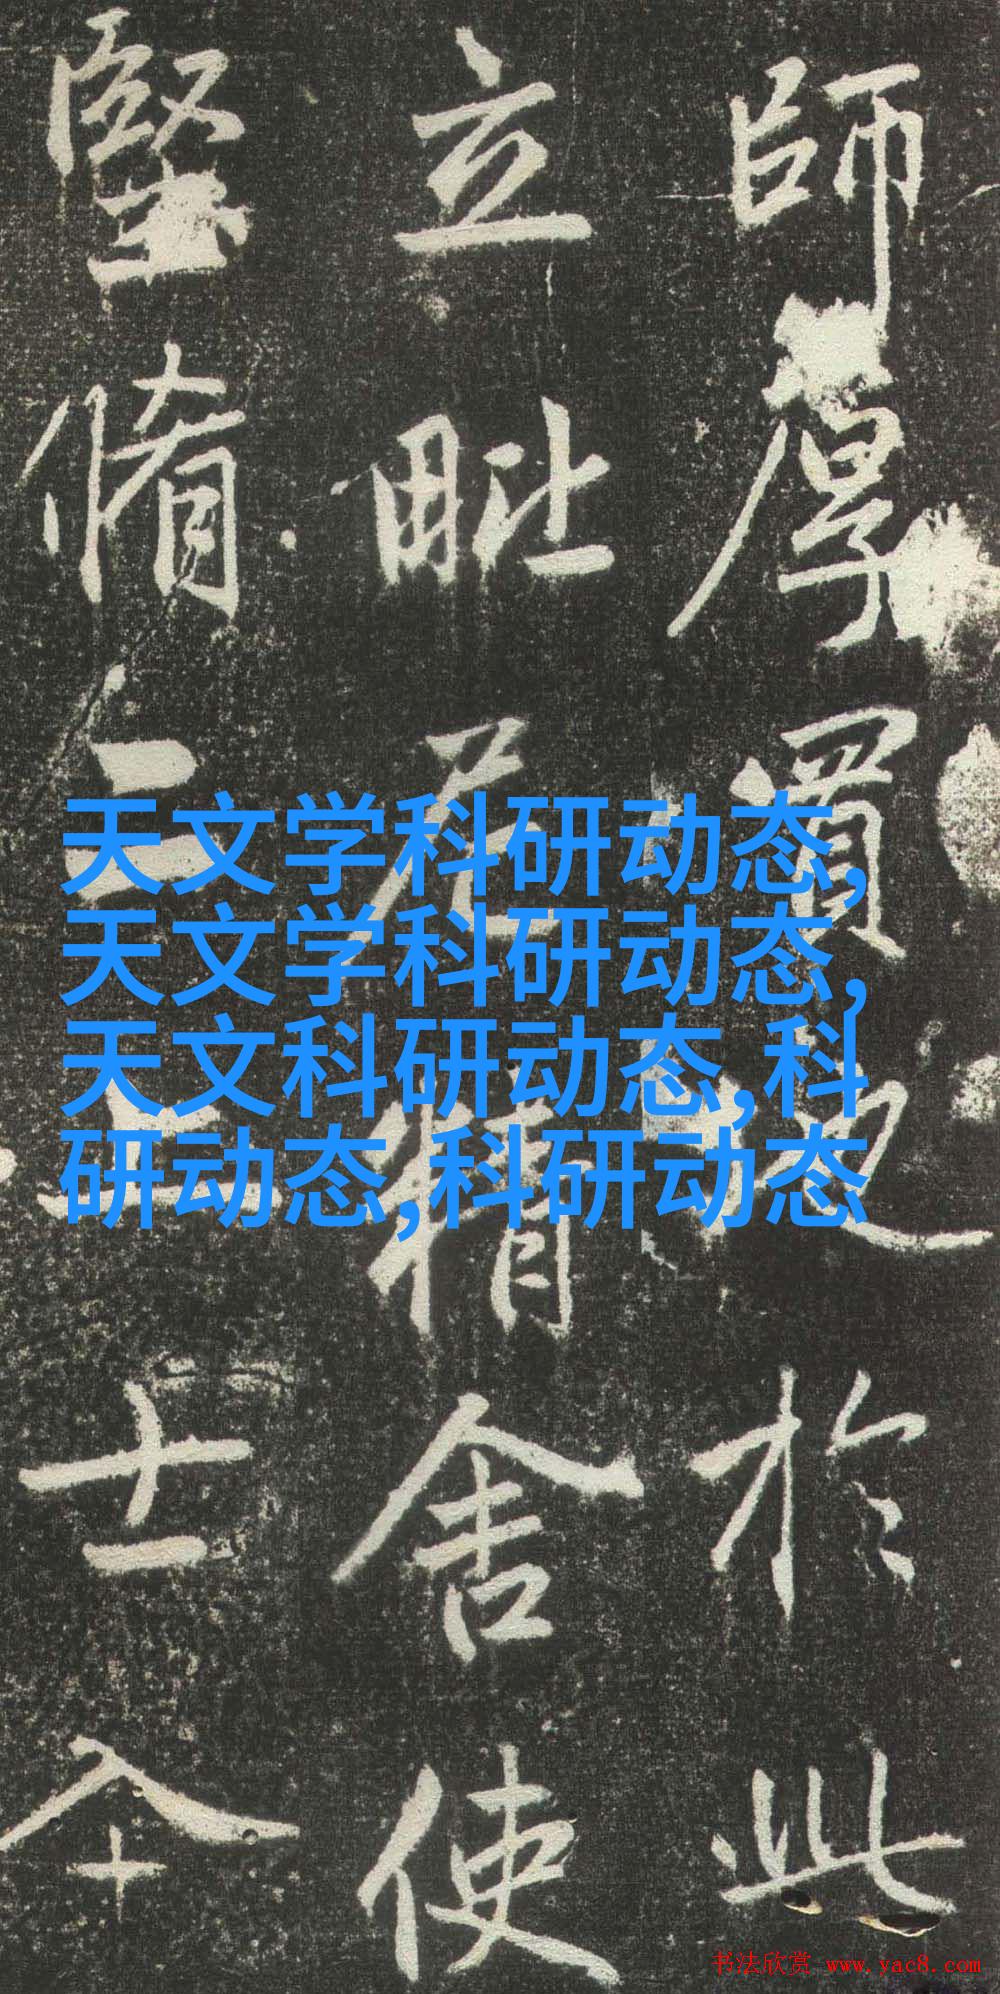 師厚買地於此
立毗尼精舍使
堅脩二
士
天文学科研动态,
天文学科研动态,
天文科研动态,科
研动态,科研动态
书法欣赏 www.yac8.com